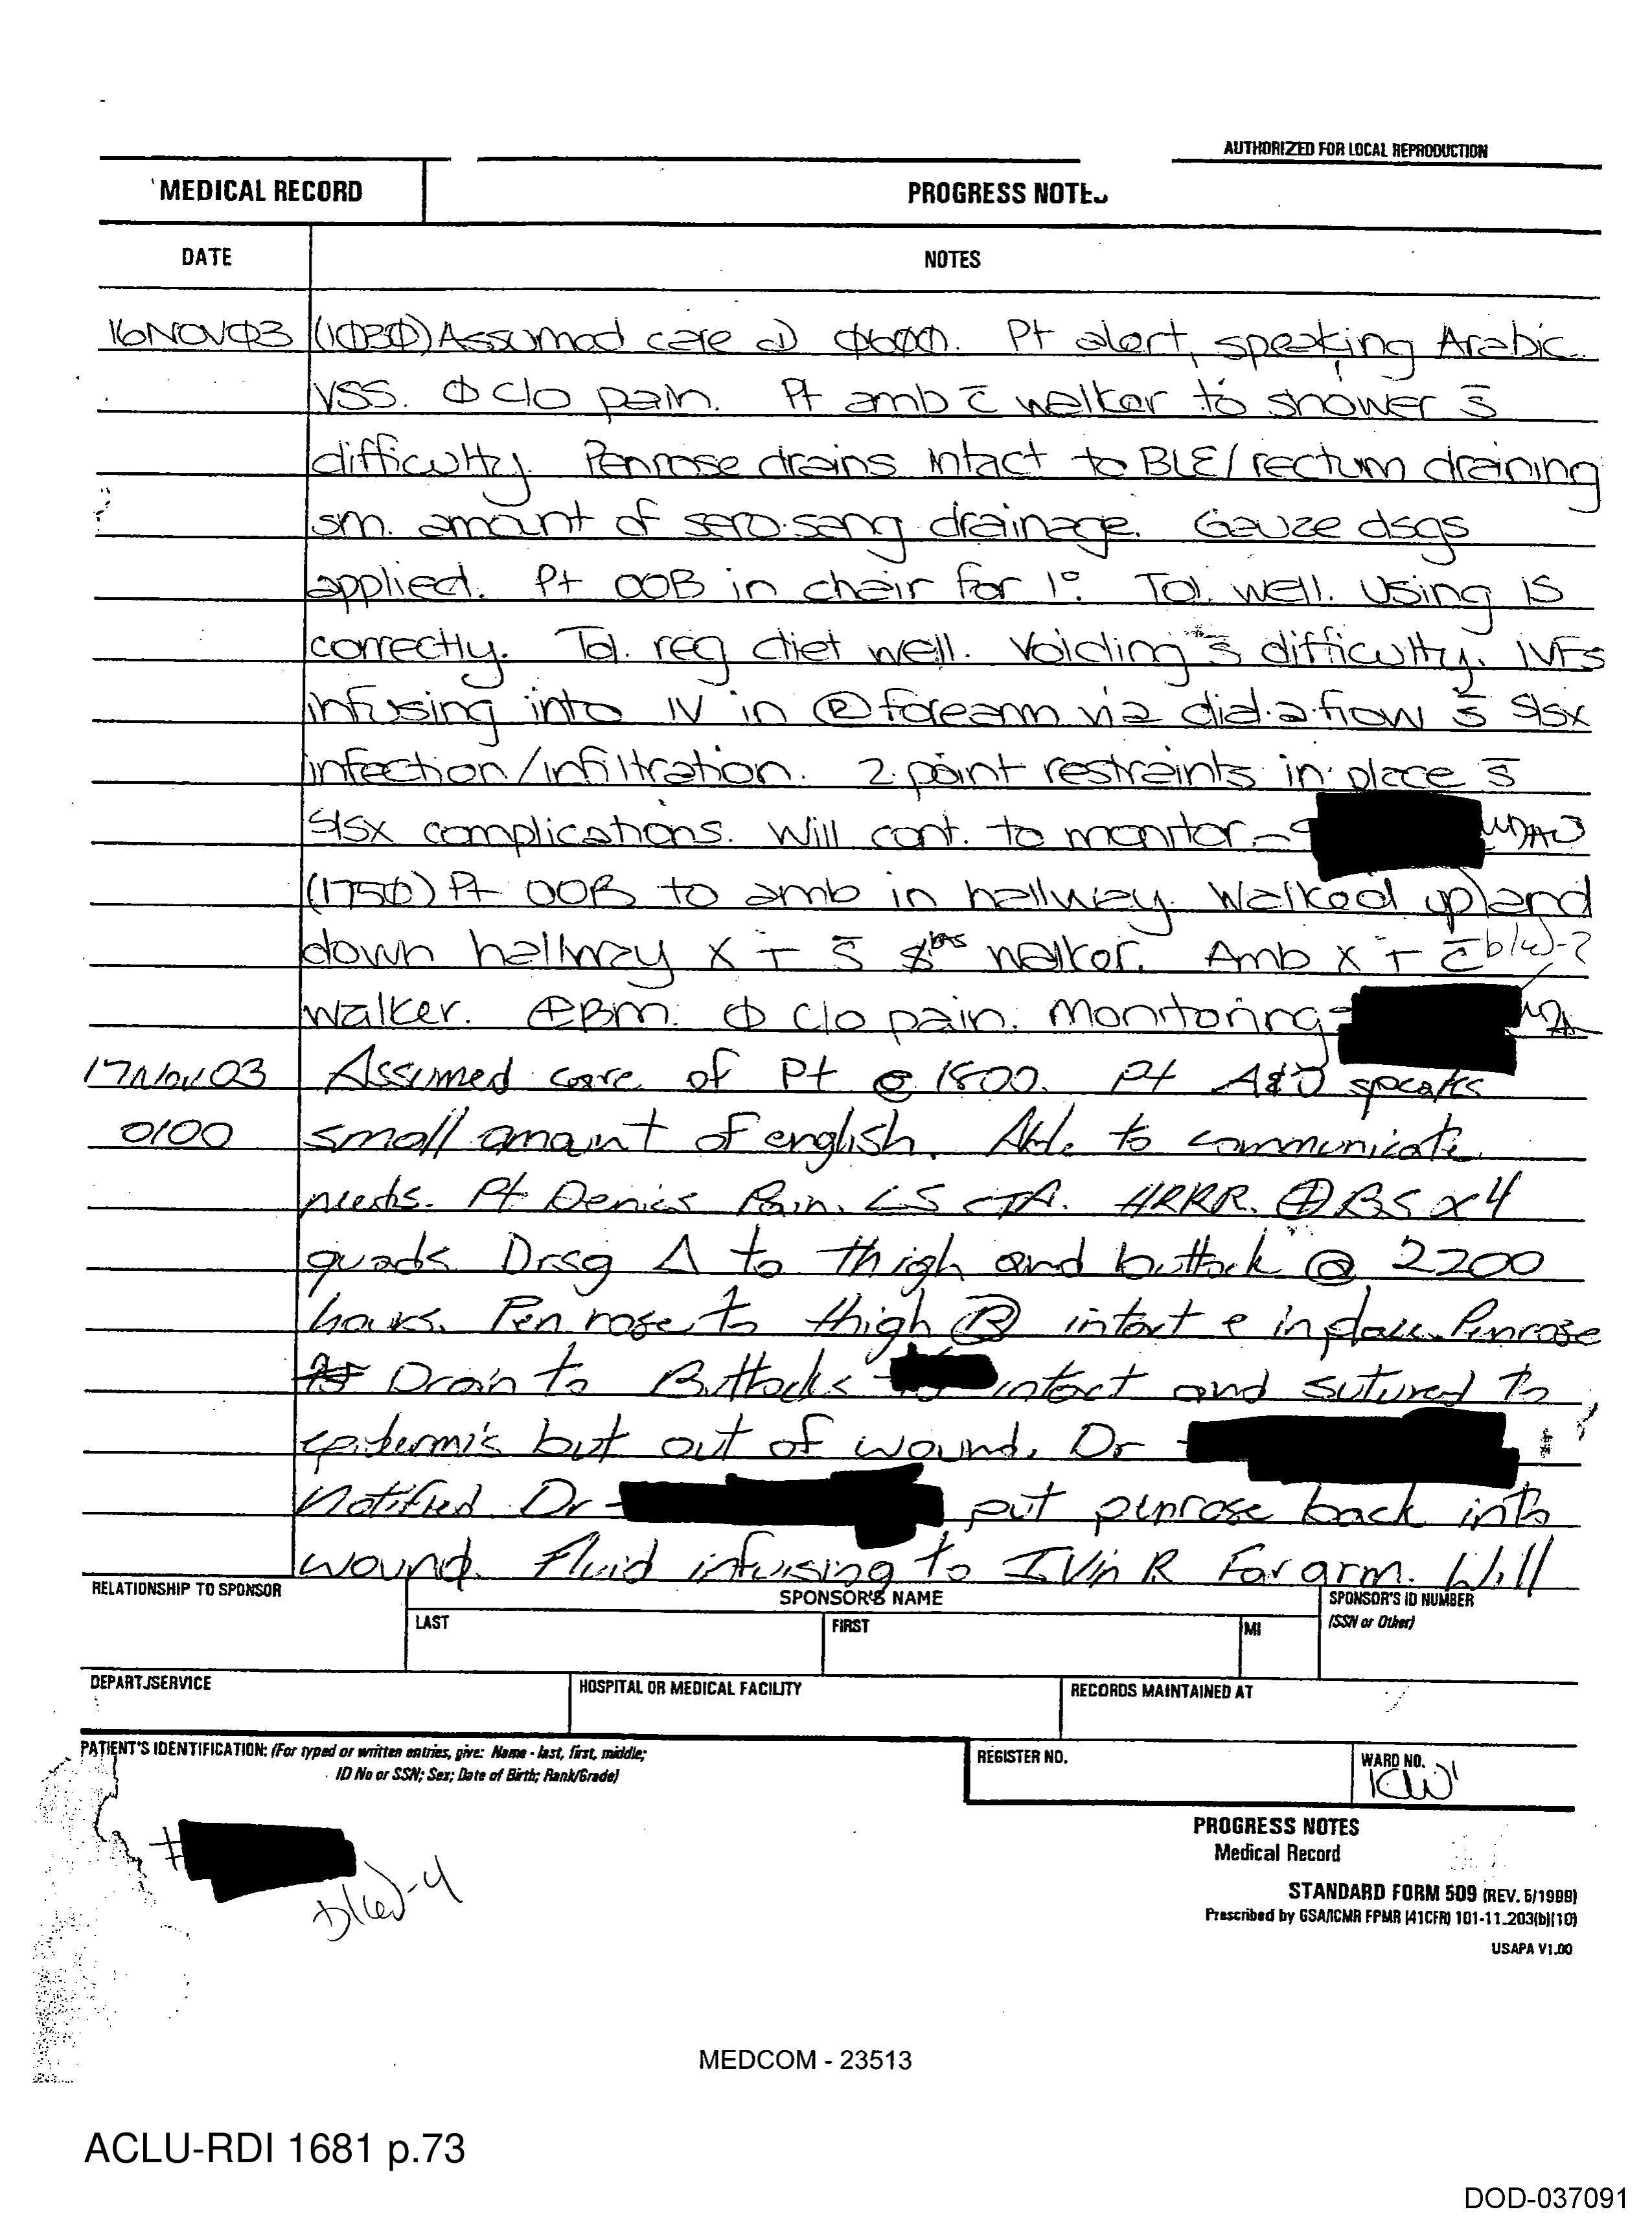 AUTHORIZED FOR LOCAL REPRODUCTION
MEDICAL RECORD
PROGRESS NOTE
DATE
NOTES
16NOV03 (1030) Assumed care @ 0600. Pt alert, speaking Arabic.
VSS. Ø c/o pain. Pt amb c̄ walker to shower s̄
difficulty. Penrose drains intact to BLE/rectum draining
sm. amount of sero-sang drainage. Gauze dsgs
applied. Pt OOB in chair for 1°. Tol. well. Using IS
correctly. Tol. reg diet well. Voiding s̄ difficulty. IVFs
infusing into IV in Ⓡ forearm via dial-a-flow s̄ S/sx
infection/infiltration. 2-point restraints in place s̄
S/sx complications. Will cont. to monitor
(1750) Pt OOB to amb in hallway. Walked up and
down hallway x T s̄ walker. Amb x T c̄ b(6)-2
walker. ⊕BM. Ø c/o pain. Monitoring
17Nov03 Assumed care of Pt @ 1800. Pt A&O speaks
0100 small amount of english. Able to communicate
needs. Pt Denies Pain. LS CTA. HRRR. ⊕ BS x4
quads Drsg Δ to thigh and buttock @ 2200
hours. Penrose to thigh Ⓑ intact e in place. Penrose
Drain to Buttocks intact and sutured to
epidermis but out of wound. Dr
Notified. Dr put penrose back into
wound. Fluid infusing to IV in R Forarm. Will
RELATIONSHIP TO SPONSOR
SPONSOR'S NAME
SPONSOR'S ID NUMBER
(SSN or Other)
LAST
FIRST
MI
DEPART./SERVICE
HOSPITAL OR MEDICAL FACILITY
RECORDS MAINTAINED AT
PATIENT'S IDENTIFICATION: (For typed or written entries, give: Name - last, first, middle;
ID No or SSN; Sex; Date of Birth; Rank/Grade)
REGISTER NO.
WARD NO.
ICW1
#
b(6)-4
PROGRESS NOTES
Medical Record
STANDARD FORM 509 (REV. 5/1999)
Prescribed by GSA/ICMR FPMR (41CFR) 101-11.203(b)(10)
USAPA V1.00
MEDCOM - 23513
ACLU-RDI 1681 p.73
DOD-037091